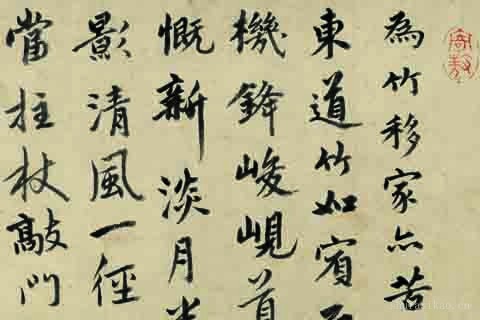 為竹移家亦苦
東道竹如賓
機鋒峻峴首
慨新淡月
影清風一徑
當拄杖敲門